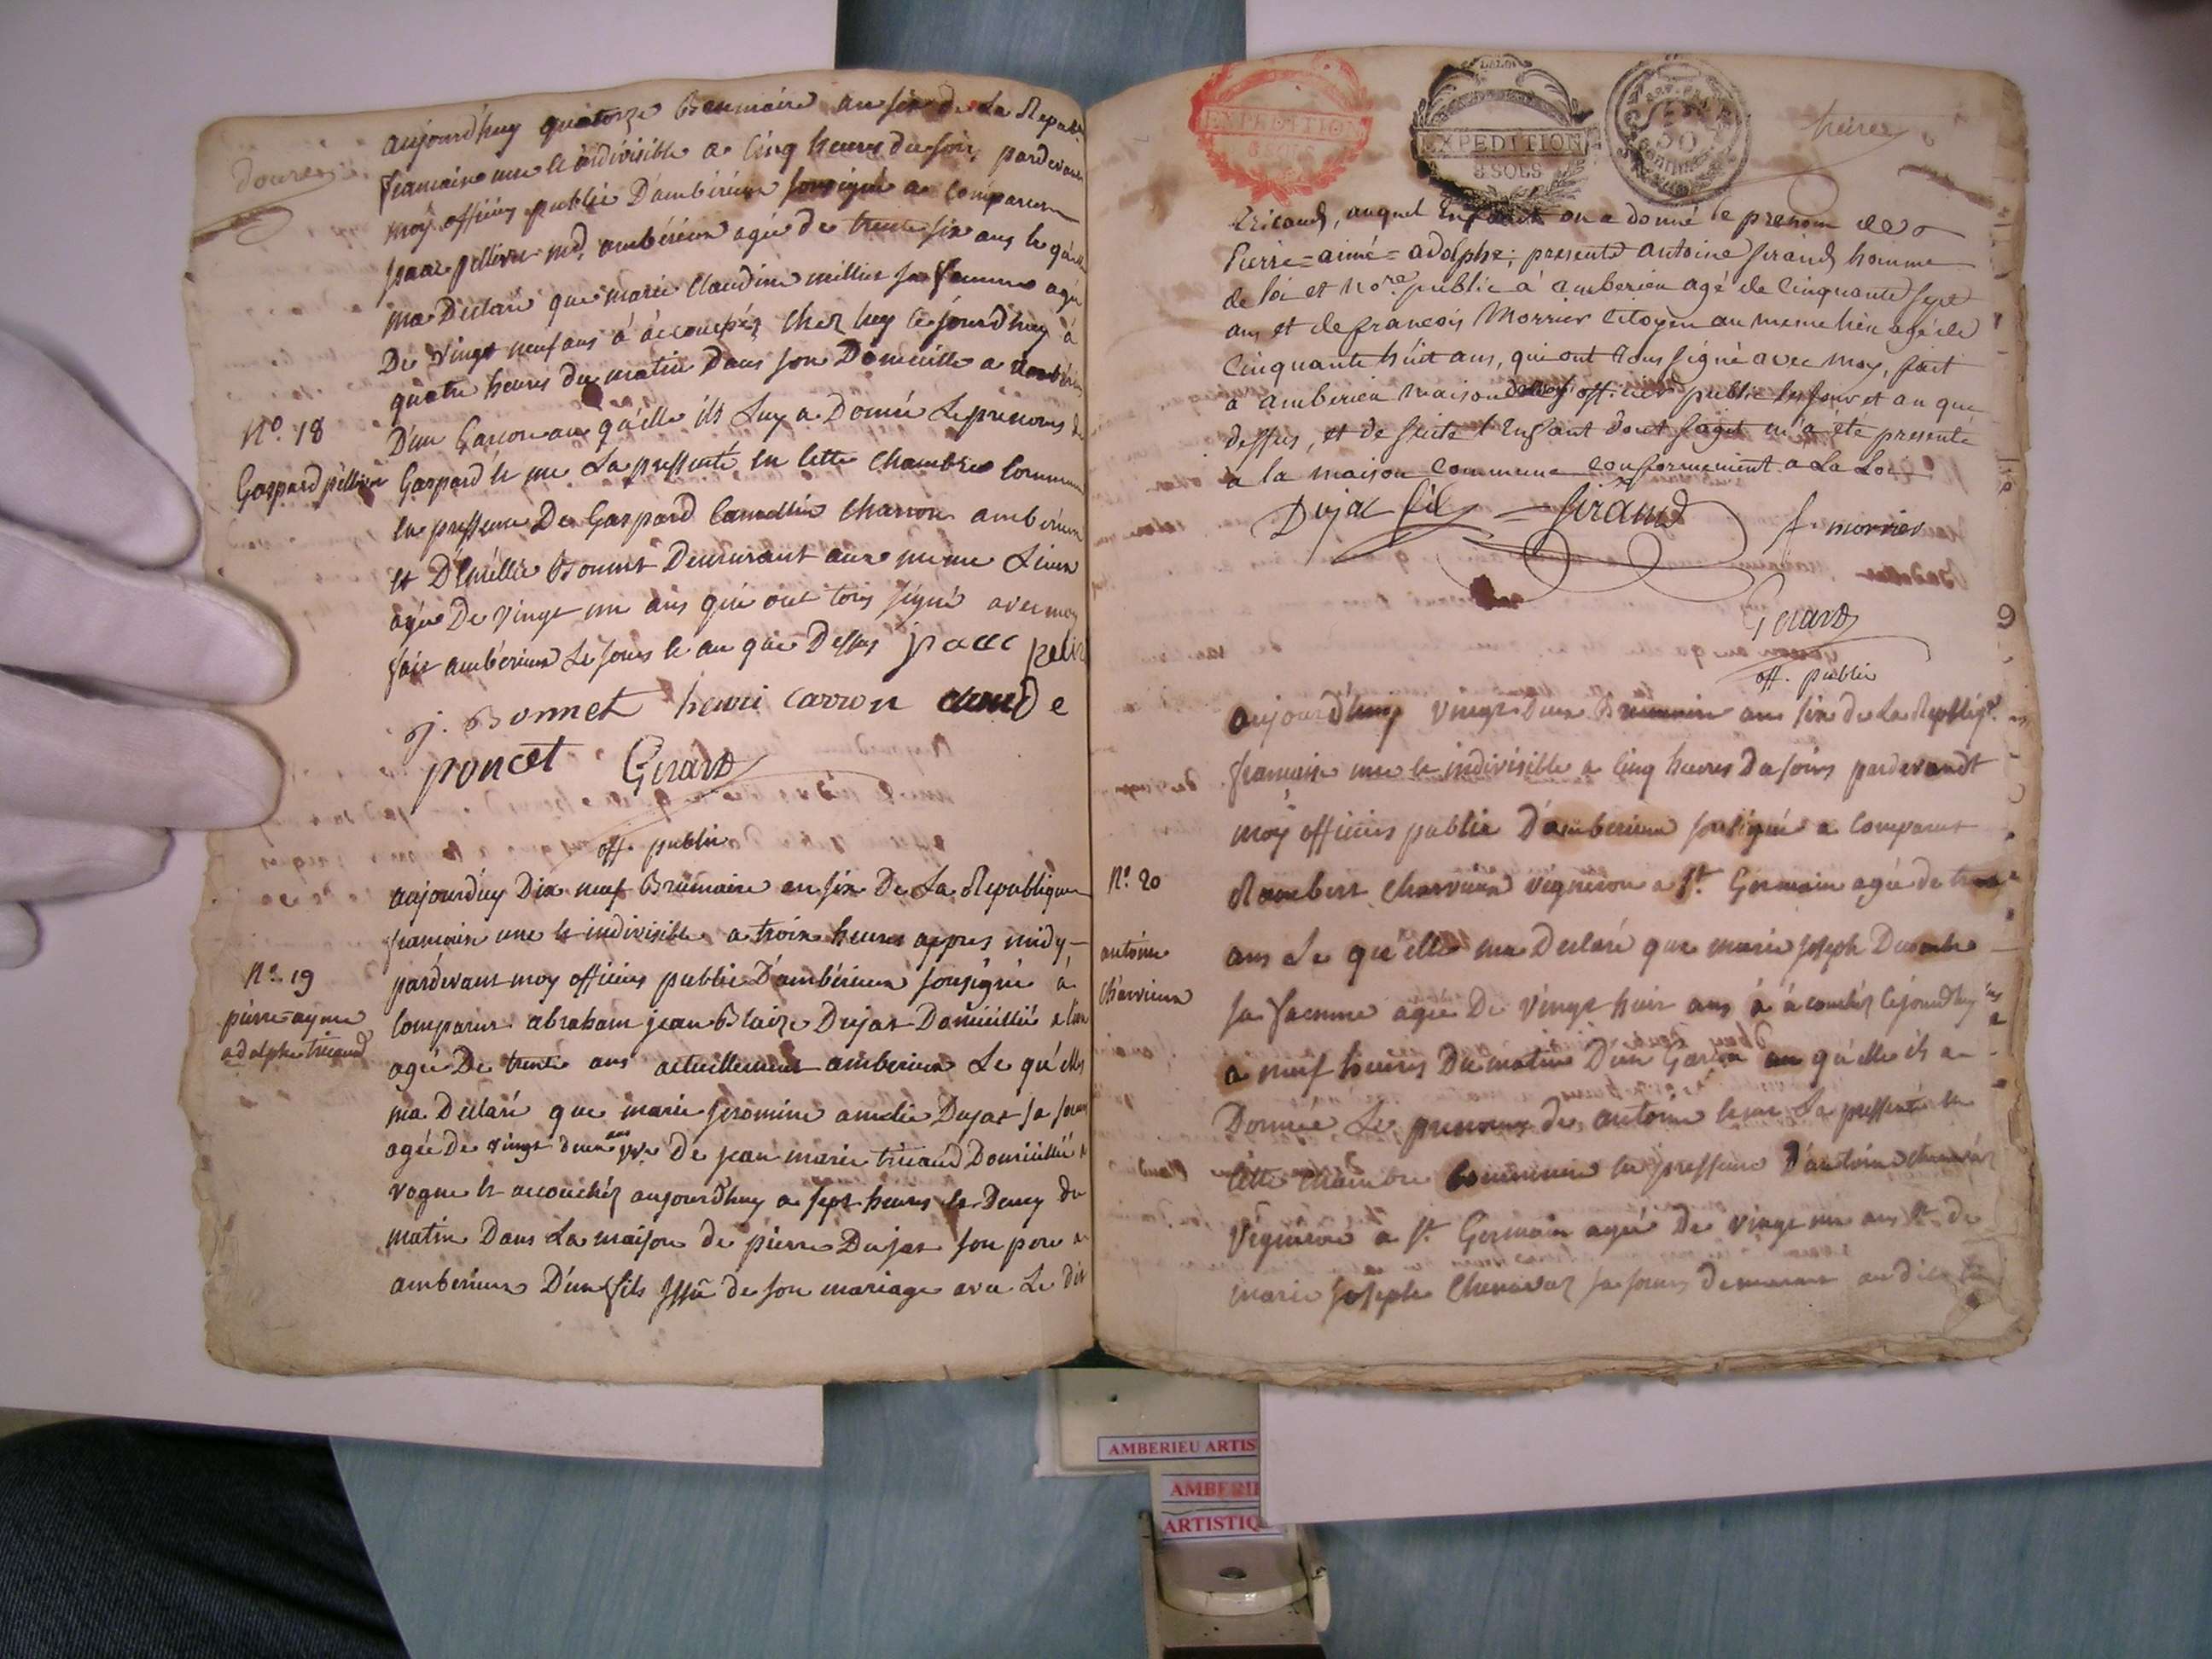 douze
aujourdhuy quatorze Brumaire an six de La Republi
francaise une le indivisible a cinq heures du soir, pardevant
moy officier public D'ambérieux soussigné a comparu
isaac pellivet md, ambérieux agée de trente six ans le qu'elle
ma Déclaré que marie Claudine millier sa femme agée
De vingt neuf ans à àccouchéz chez luy le jourd'huy à
quatre heures du matin dans son Domicille a ambérieux
D'un Garcon au qu'elle ils Luy a Donné Le prenoms de
N.º 18
Gaspard pellivet
Gaspard le me La pressenté en cette chambre commune
en pressence De Gaspard charron ambérieux
et Bonnet Demeurant aux meme Lieux
agée De vingt un ans qui ont tous signé avec moy
fait ambérieux Le jours le an que Dessus isaac peliv
j. Bonnet henri carron claude
poncet Gerard
off. public
aujourduy Dix neuf Brumaire an six De La Republique
francaise une le indivisible a troix heures appres midy -
N.º 19
pierre-ayme
adolphe tricaud
pardevant moy officier public D'ambérieux sousigné à
comparus abraham jean Blaize Dujat Domicillié a
agée De trente ans actuellement amberieux Le qu'elle
ma Déclaré que marie jeromine amelie Dujat sa soeur
agée De vingt deux ans De jean marie tricaud Domicillié a
vogue le accouchéz aujourdhuy a sept heures le Demy du
matin Dans La maison de pierre Dujat son pere a
amberieux D'un fils issû de son mariage avec Le dit
EXPEDITION
LA LOI
EXPEDITION
8 SOLS
REP. FRA
50
CENTIMES
treize
tricaud, auquel Enfant on a donné le prenom de
Pierre=aimé=adolphe; presents antoine sirand homme
de loi et no.re public à amberieu agé de cinquante sept
ans et de francois Morrier citoyen au meme lieu agé de
cinquante huit ans, qui ont tous signé avec moy, fait
a amberieu maison de moy officier public les jour et an que
dessus, et de suite l'enfant dont sagit m'a été presenté
a la maison commune conformement a La Loi
Dujat fils = sirand f. morrier
Gerard
off. public
9
aujourd'huy vingt Deux Brumaire an six de La Republiq.e
francaise une le indivisible a cinq heures Du soirs pardevandt
moy officier public D'amberieux sousigné a comparut
N.º 20
antoine
Charvieux
Rambert Charvieux vigneron a S.t Germain agée de trente
ans Le qu'elle ma Declaré que marie joseph
sa faemme agée De vingt huit ans à àcouchéz cejourdhuy
a neuf heures Du matin D'un Garcon au qu'elle ils a
Donnée Le prenoms de antoine le me La pressenté en
cette chambre commune en pressence D'antoine chenavaz
vigneron a S.t Germain agée De vingt un ans et de
marie joseph Chenavaz sa soeurs demeurant audit lieu
AMBERIEU ARTIS
AMBERI
ARTISTIQ